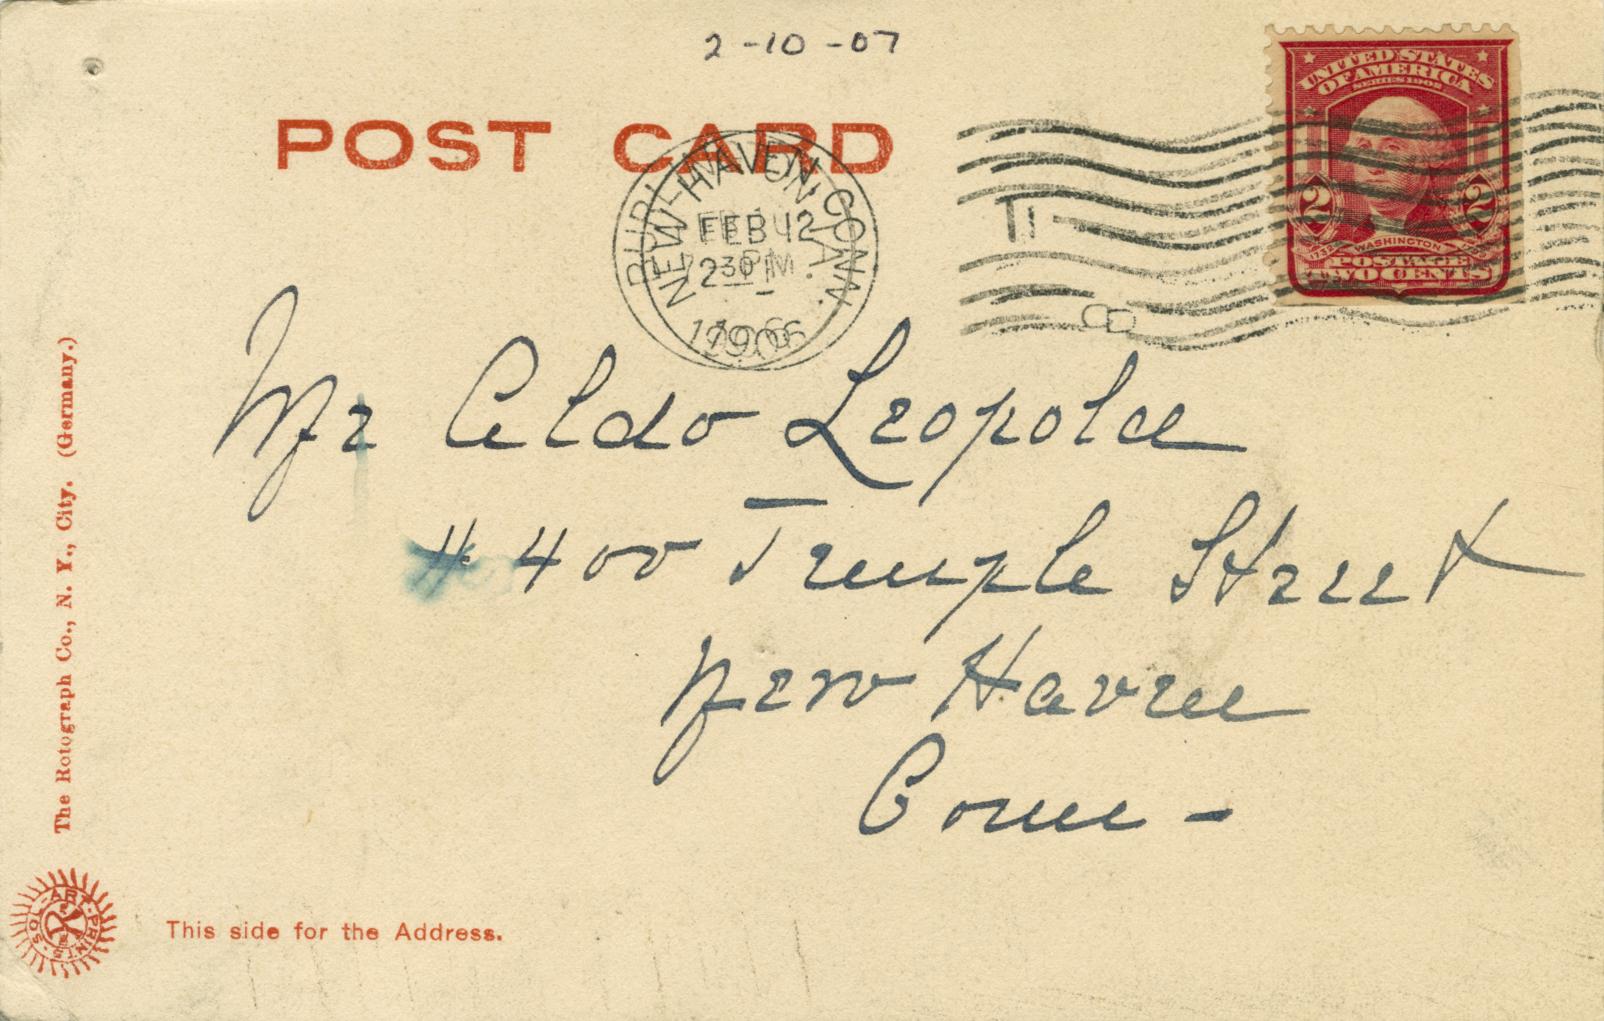 2-10-07
UNITED STATES
OF AMERICA
SERIES 1902
POST CARD
NEW HAVEN, CONN.
FEB 12
230 PM
1906
2 2
1732 WASHINGTON 1799
POSTAGE
TWO CENTS
Mr Aldo Leopold
# 400 Temple Street
New Haven
Conn -
The Rotograph Co., N. Y., City. (Germany.)
SOL-ART-PRINTS
This side for the Address.